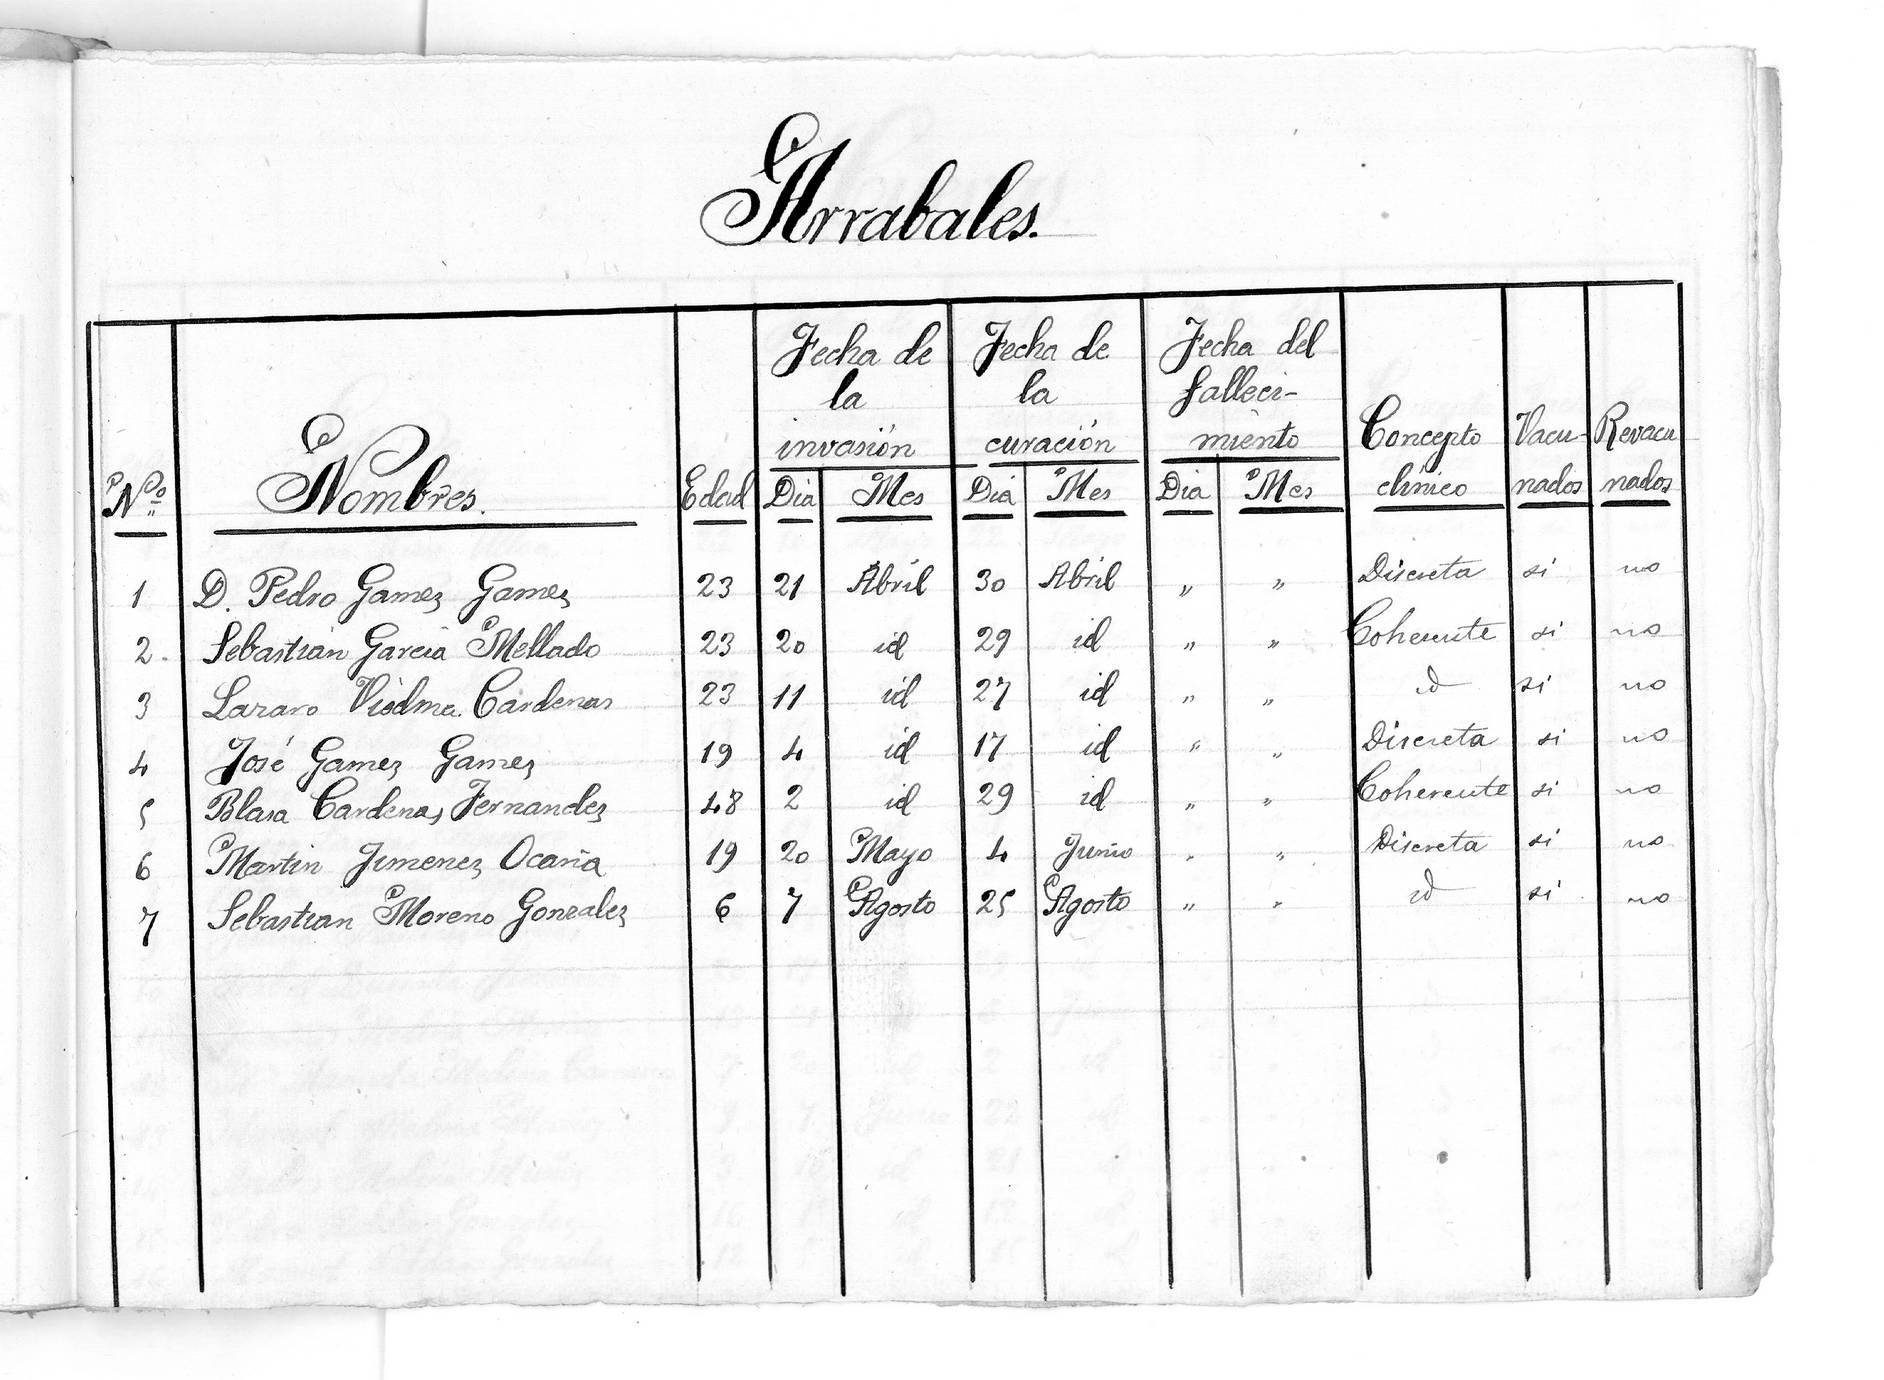 Arrabales.
Nº Nombres. Edad Fecha de la invasión Dia Mes Fecha de la curación Dia Mes Fecha del falleci-miento Dia Mes Concepto clínico Vacu-nados Revacunados
1 D. Pedro Gamez Gamez 23 21 Abril 30 Abril " " Discreta si no
2 Sebastián Garcia Mellado 23 20 id 29 id " " Coherente si no
3 Lazaro Viedma Cardenas 23 11 id 27 id " " id si no
4 José Gamez Gamez 19 4 id 17 id " " Discreta si no
5 Blasa Cardenas Fernandez 48 2 id 29 id " " Coherente si no
6 Martin Jimenez Ocaña 19 20 Mayo 4 Junio " " Discreta si no
7 Sebastian Moreno Gonzalez 6 7 Agosto 25 Agosto " " id si no